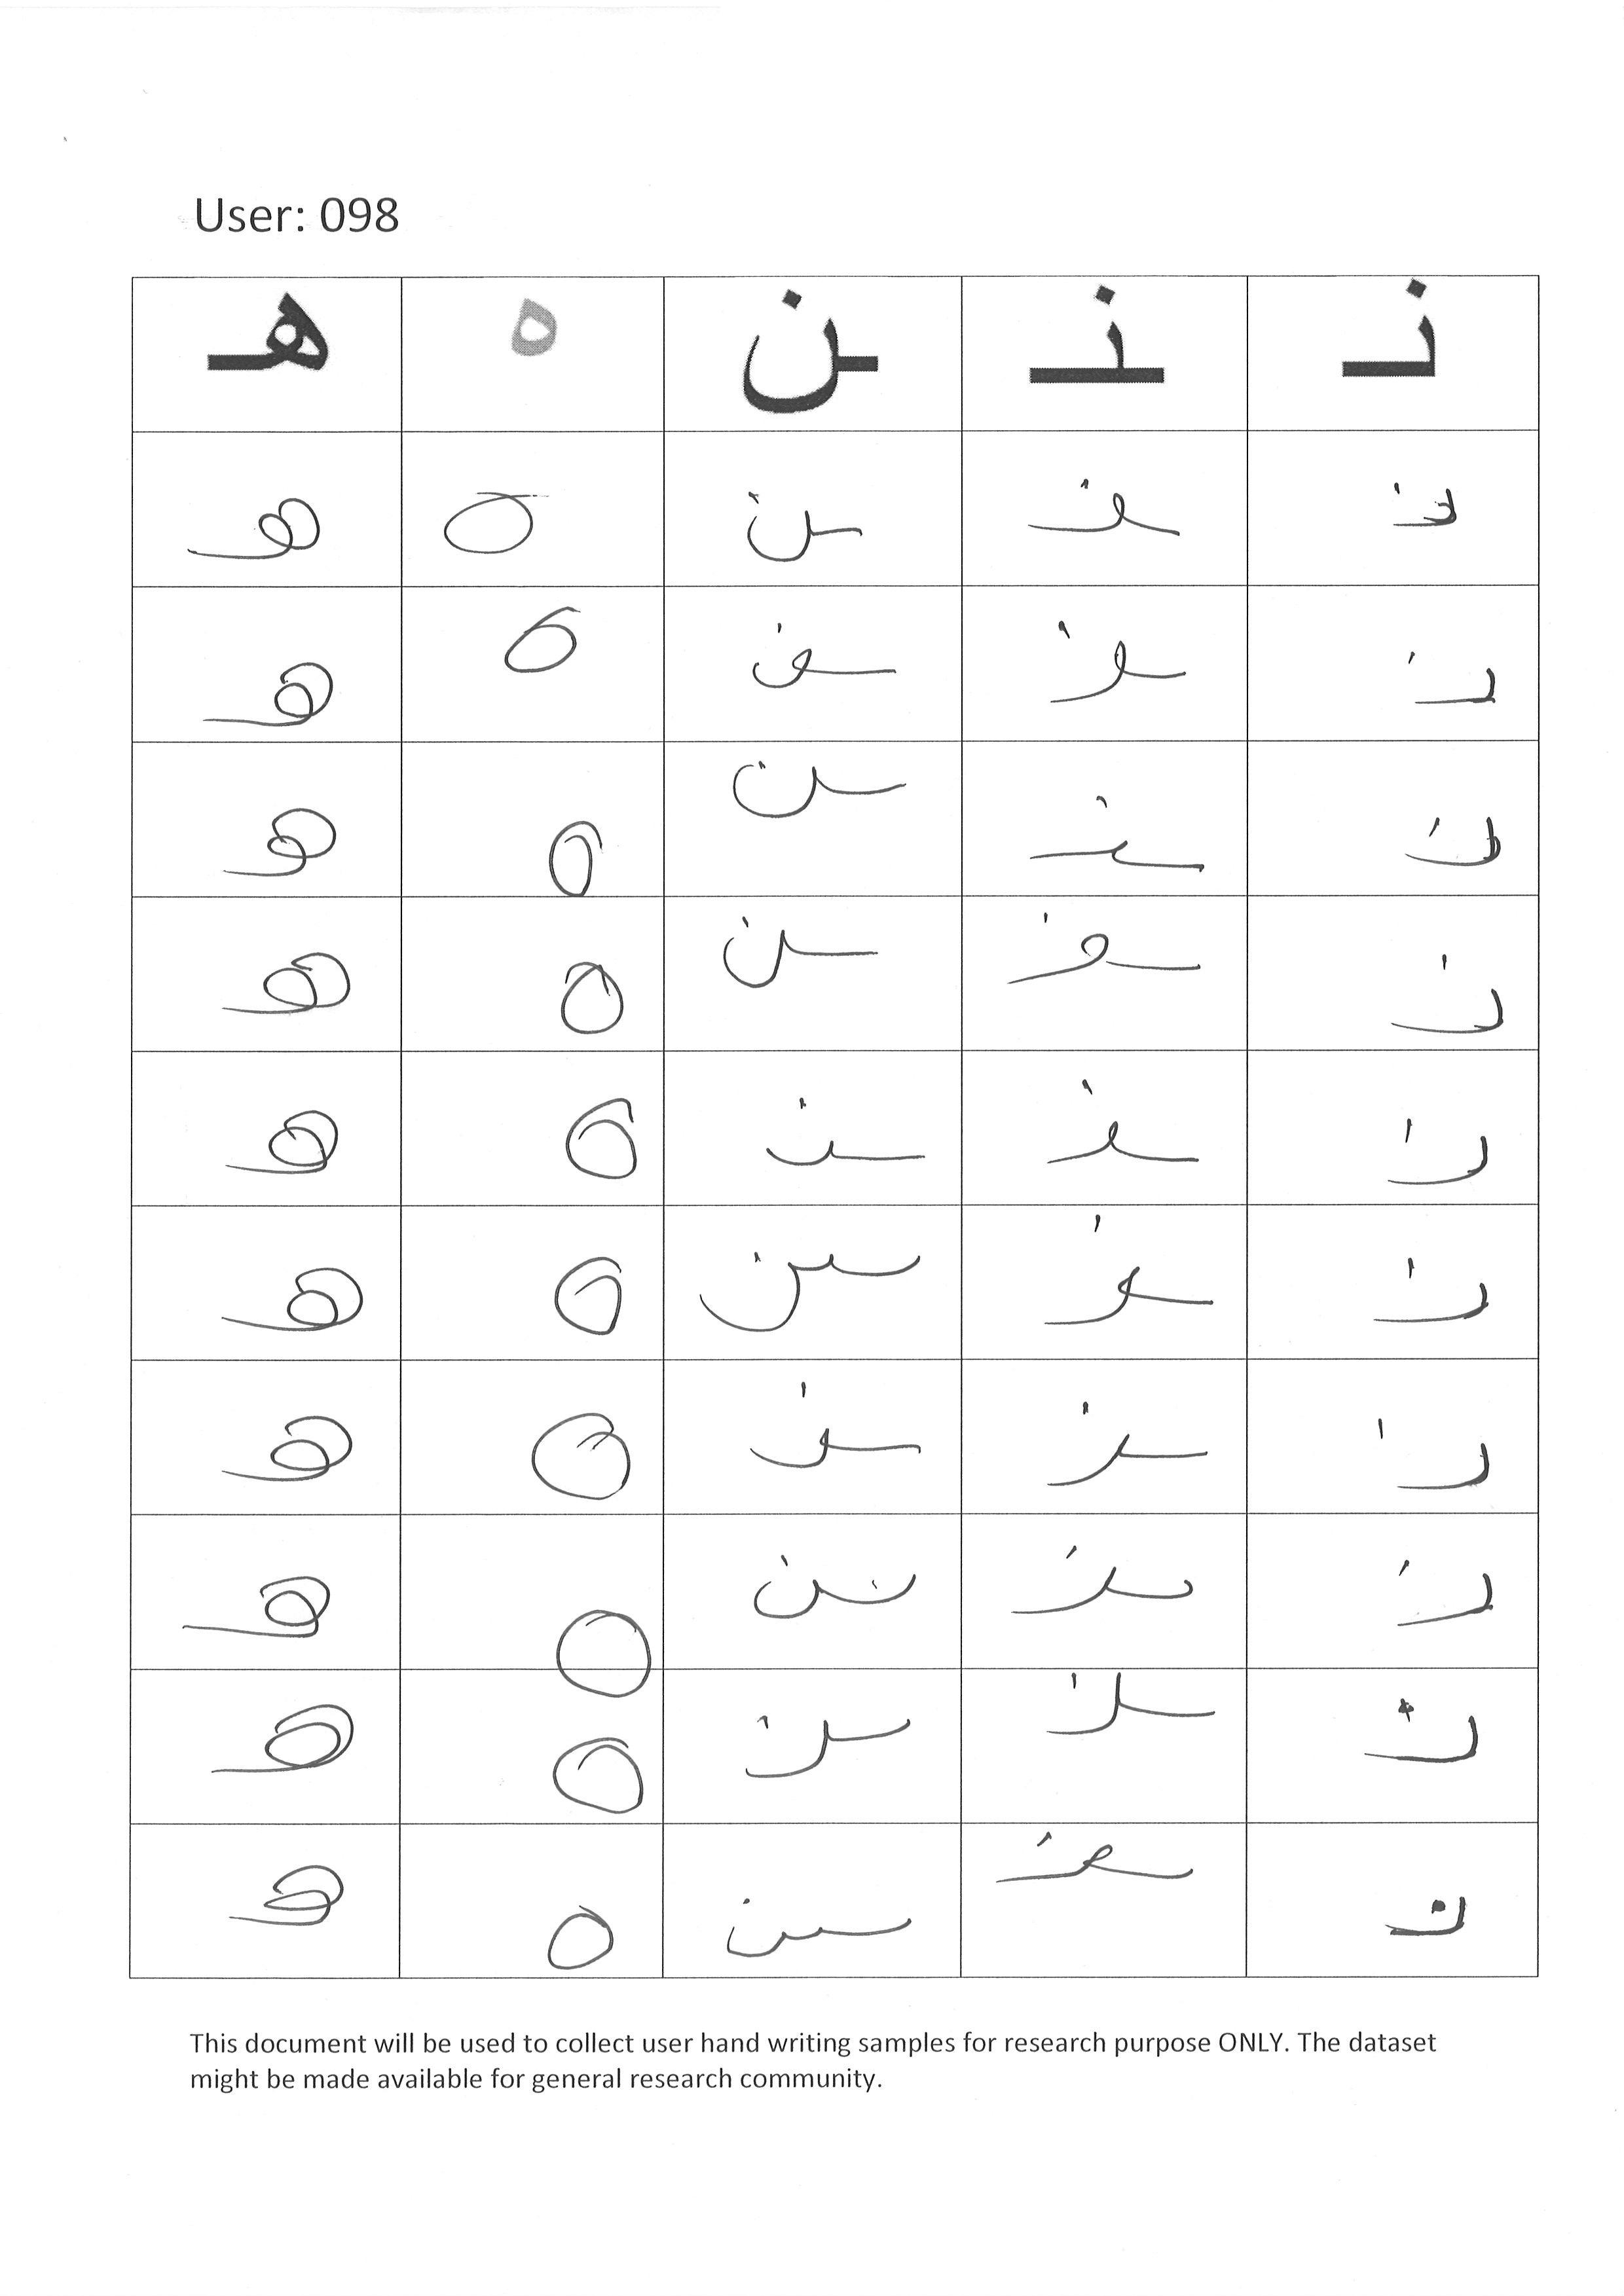 User: 098
نـ ـنـ ـن ه هـ
نـ ـنـ ـن ه هـ
نـ ـنـ ـن ه هـ
نـ ـنـ ـن ه هـ
نـ ـنـ ـن ه هـ
نـ ـنـ ـن ه هـ
نـ ـنـ ـن ه هـ
نـ ـنـ ـن ه هـ
نـ ـنـ ـن ه هـ
نـ ـنـ ـن ه هـ
نـ ـنـ ـن ه هـ
This document will be used to collect user hand writing samples for research purpose ONLY. The dataset
might be made available for general research community.